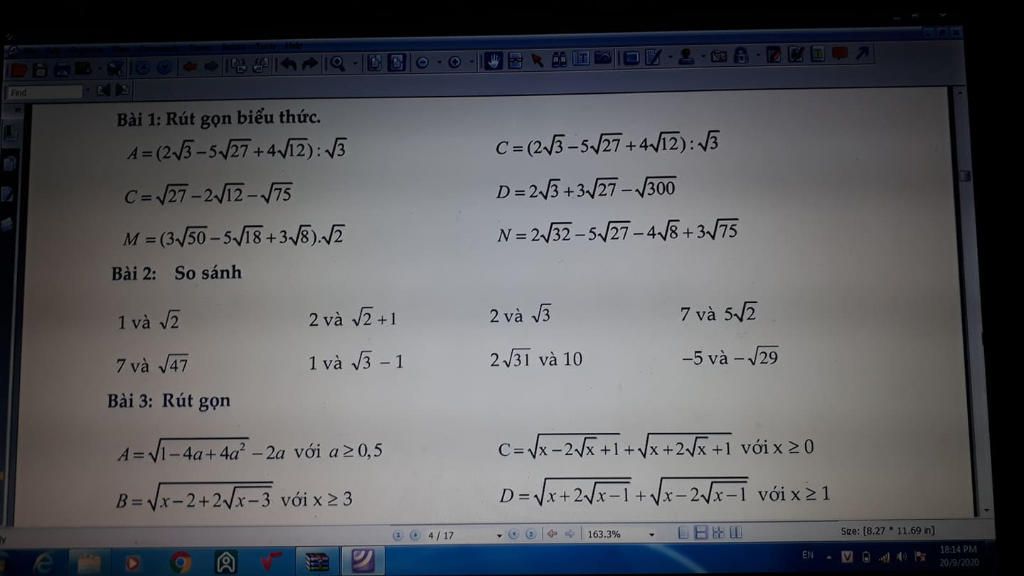 Find
Bài 1: Rút gọn biểu thức.
A = (2√3 − 5√27 + 4√12) : √3 C = (2√3 − 5√27 + 4√12) : √3
C = √27 − 2√12 − √75 D = 2√3 + 3√27 − √300
M = (3√50 − 5√18 + 3√8).√2 N = 2√32 − 5√27 − 4√8 + 3√75
Bài 2: So sánh
1 và √2 2 và √2 + 1 2 và √3 7 và 5√2
7 và √47 1 và √3 − 1 2√31 và 10 −5 và −√29
Bài 3: Rút gọn
A = √(1 − 4a + 4a²) − 2a với a ≥ 0,5 C = √(x − 2√x + 1) + √(x + 2√x + 1) với x ≥ 0
B = √(x − 2 + 2√(x − 3)) với x ≥ 3 D = √(x + 2√(x − 1)) + √(x − 2√(x − 1)) với x ≥ 1
4 / 17 163.3% Size: [8.27 * 11.69 in]
EN 18:14 PM
20/9/2020